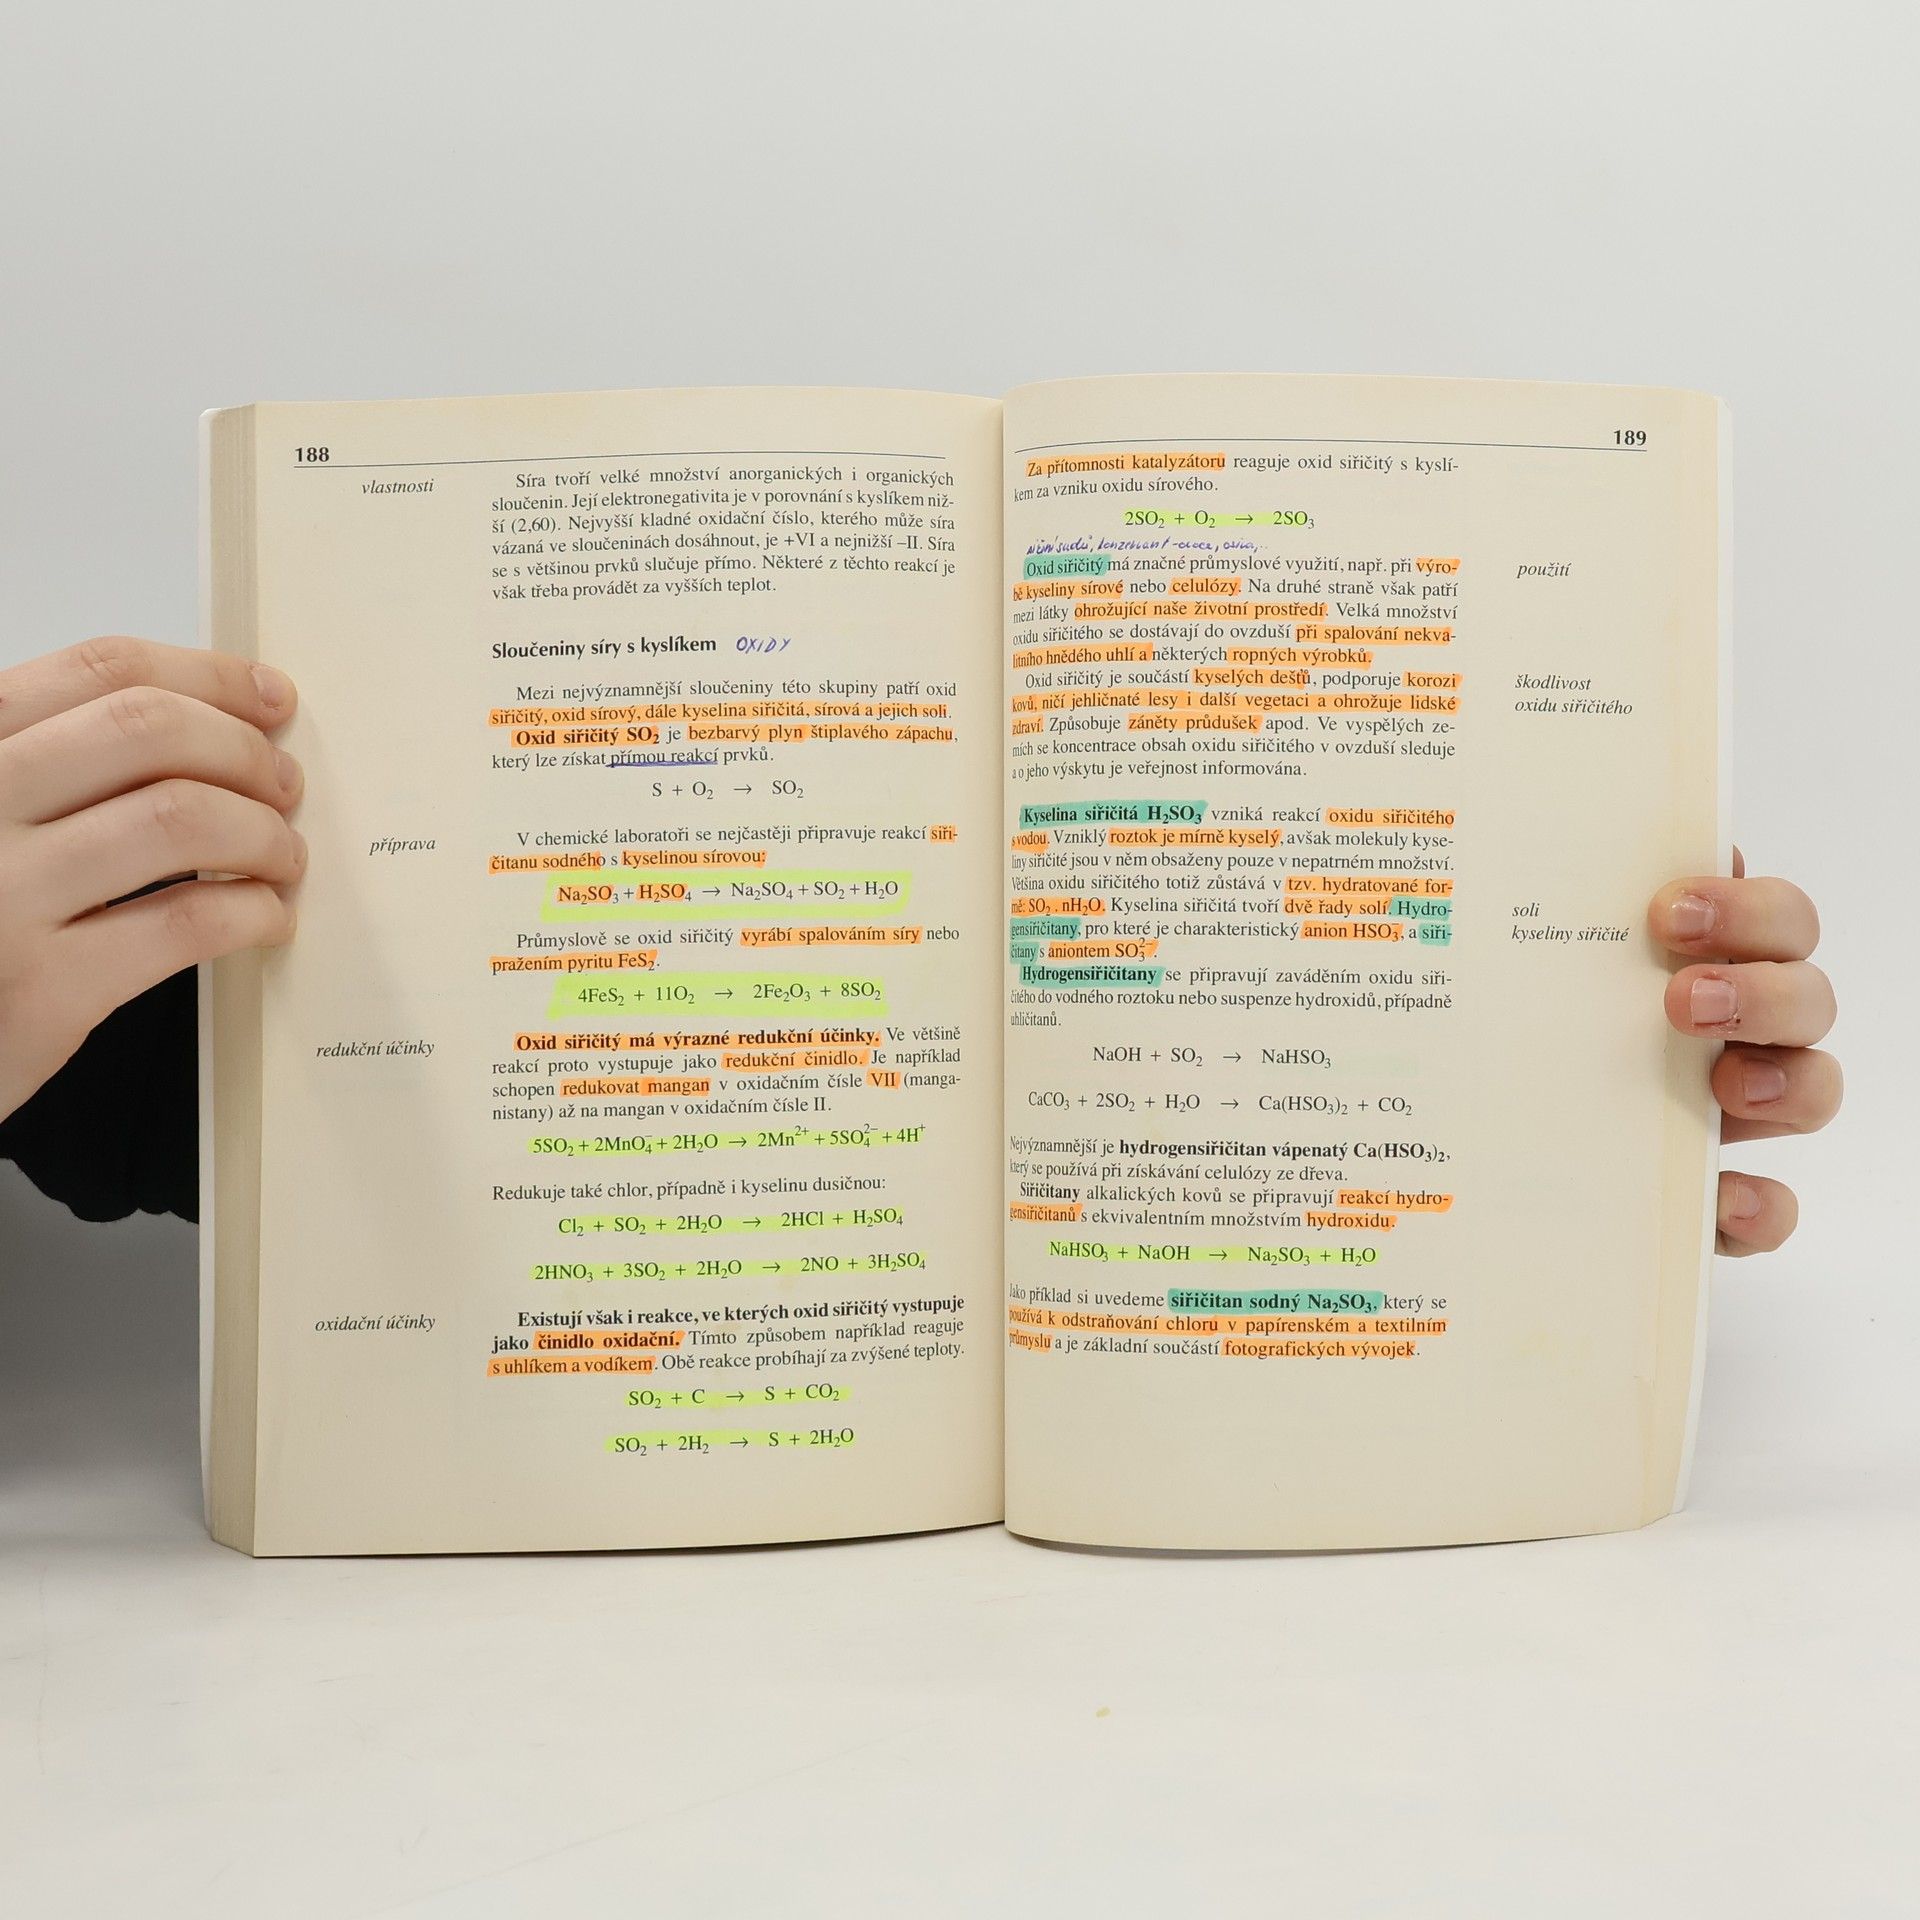 188
vlastnosti
Síra tvoří velké množství anorganických i organických
sloučenin. Její elektronegativita je v porovnání s kyslíkem niž-
ší (2,60). Nejvyšší kladné oxidační číslo, kterého může síra
vázaná ve sloučeninách dosáhnout, je +VI a nejnižší –II. Síra
se s většinou prvků slučuje přímo. Některé z těchto reakcí je
však třeba provádět za vyšších teplot.
Sloučeniny síry s kyslíkem OXIDY
Mezi nejvýznamnější sloučeniny této skupiny patří oxid
siřičitý, oxid sírový, dále kyselina siřičitá, sírová a jejich soli.
Oxid siřičitý SO₂ je bezbarvý plyn štiplavého zápachu,
který lze získat přímou reakcí prvků.
S + O₂ → SO₂
příprava
V chemické laboratoři se nejčastěji připravuje reakcí siři-
čitanu sodného s kyselinou sírovou:
Na₂SO₃ + H₂SO₄ → Na₂SO₄ + SO₂ + H₂O
Průmyslově se oxid siřičitý vyrábí spalováním síry nebo
pražením pyritu FeS₂.
4FeS₂ + 11O₂ → 2Fe₂O₃ + 8SO₂
redukční účinky
Oxid siřičitý má výrazné redukční účinky. Ve většině
reakcí proto vystupuje jako redukční činidlo. Je například
schopen redukovat mangan v oxidačním čísle VII (manga-
nistany) až na mangan v oxidačním čísle II.
5SO₂ + 2MnO₄⁻ + 2H₂O → 2Mn²⁺ + 5SO₄²⁻ + 4H⁺
Redukuje také chlor, případně i kyselinu dusičnou:
Cl₂ + SO₂ + 2H₂O → 2HCl + H₂SO₄
2HNO₃ + 3SO₂ + 2H₂O → 2NO + 3H₂SO₄
oxidační účinky
Existují však i reakce, ve kterých oxid siřičitý vystupuje
jako činidlo oxidační. Tímto způsobem například reaguje
s uhlíkem a vodíkem. Obě reakce probíhají za zvýšené teploty.
SO₂ + C → S + CO₂
SO₂ + 2H₂ → S + 2H₂O
189
Za přítomnosti katalyzátoru reaguje oxid siřičitý s kyslí-
kem za vzniku oxidu sírového.
2SO₂ + O₂ → 2SO₃
Oxid siřičitý má značné průmyslové využití, např. při výro-
bě kyseliny sírové nebo celulózy. Na druhé straně však patří
mezi látky ohrožující naše životní prostředí. Velká množství
oxidu siřičitého se dostávají do ovzduší při spalování nekva-
litního hnědého uhlí a některých ropných výrobků.
použití
Oxid siřičitý je součástí kyselých dešťů, podporuje korozi
kovů, ničí jehličnaté lesy i další vegetaci a ohrožuje lidské
zdraví. Způsobuje záněty průdušek apod. Ve vyspělých ze-
mích se koncentrace obsah oxidu siřičitého v ovzduší sleduje
a o jeho výskytu je veřejnost informována.
škodlivost
oxidu siřičitého
Kyselina siřičitá H₂SO₃ vzniká reakcí oxidu siřičitého
s vodou. Vzniklý roztok je mírně kyselý, avšak molekuly kyse-
liny siřičité jsou v něm obsaženy pouze v nepatrném množství.
Většina oxidu siřičitého totiž zůstává v tzv. hydratované for-
mě: SO₂ . nH₂O. Kyselina siřičitá tvoří dvě řady solí. Hydro-
gensiřičitany, pro které je charakteristický anion HSO₃⁻, a siři-
čitany s aniontem SO₃²⁻.
soli
kyseliny siřičité
Hydrogensiřičitany se připravují zaváděním oxidu siři-
čitého do vodného roztoku nebo suspenze hydroxidů, případně
uhličitanů.
NaOH + SO₂ → NaHSO₃
CaCO₃ + 2SO₂ + H₂O → Ca(HSO₃)₂ + CO₂
Nejvýznamnější je hydrogensiřičitan vápenatý Ca(HSO₃)₂,
který se používá při získávání celulózy ze dřeva.
Siřičitany alkalických kovů se připravují reakcí hydro-
gensiřičitanů s ekvivalentním množstvím hydroxidu.
NaHSO₃ + NaOH → Na₂SO₃ + H₂O
Jako příklad si uvedeme siřičitan sodný Na₂SO₃, který se
používá k odstraňování chloru v papírenském a textilním
průmyslu a je základní součástí fotografických vývojek.